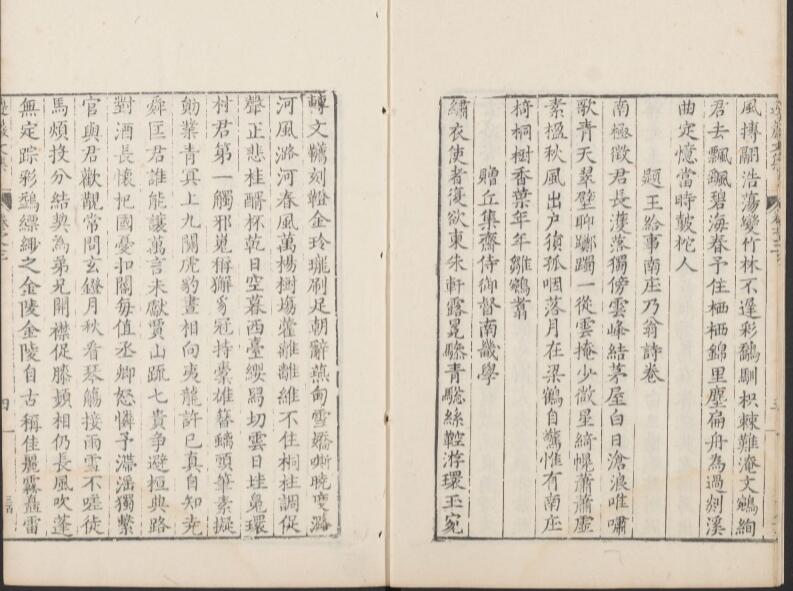 風摶翮浩蕩變竹林不逢彩鷸馴枳棘難淹文鵷絢
君去飄颻碧海春予住栖栖錦里塵扁舟為過剡溪
曲定憶當時皷柁人
題王給事南庄乃翁詩卷
南極徵君長濩落獨傍雲峰結茅屋白日滄浪唯嘯
歌青天翠壁聊躑躅一從雲掩少微星綺幌蕭蕭虛
素楹秋風出户猿孤咽落月在梁鶴自驚惟有南庄
椅桐樹香葉年年雛鵷翥
贈丘集齋侍御督南畿學
繡衣使者復欲東朱軒露冕驂青驄絲鞚游環玉宛
轉文韉刻鐙金玲瓏刷足朝辭燕甸雪驕嘶曉度潞
河風潞河春風萬楊樹塲藿離離維不住桐柱調促
聲正悲桂醑杯乾日空暮西臺纓舄切雲日珪㠶環
材君第一觸邪嵬稱獬豸冠持槖雄簪螭頭筆素擬
勛業青冥上九關虎豹晝相向夷龍許已真自知堯
舜匡君誰能讓萬言未獻賈山疏七貴争避桓典路
對酒長懷杞國憂扣關每值丞卿怒憐予滯滛獨繫
官與君歡觀常問玄鐙月秋看琴觴接雨雪不嗟徒
馬煩投分結契為弟兄開襟促膝頻相仍長風吹蓬
無定踪彩鷁縹緲之金陵金陵自古稱佳麗霧矗雷
四